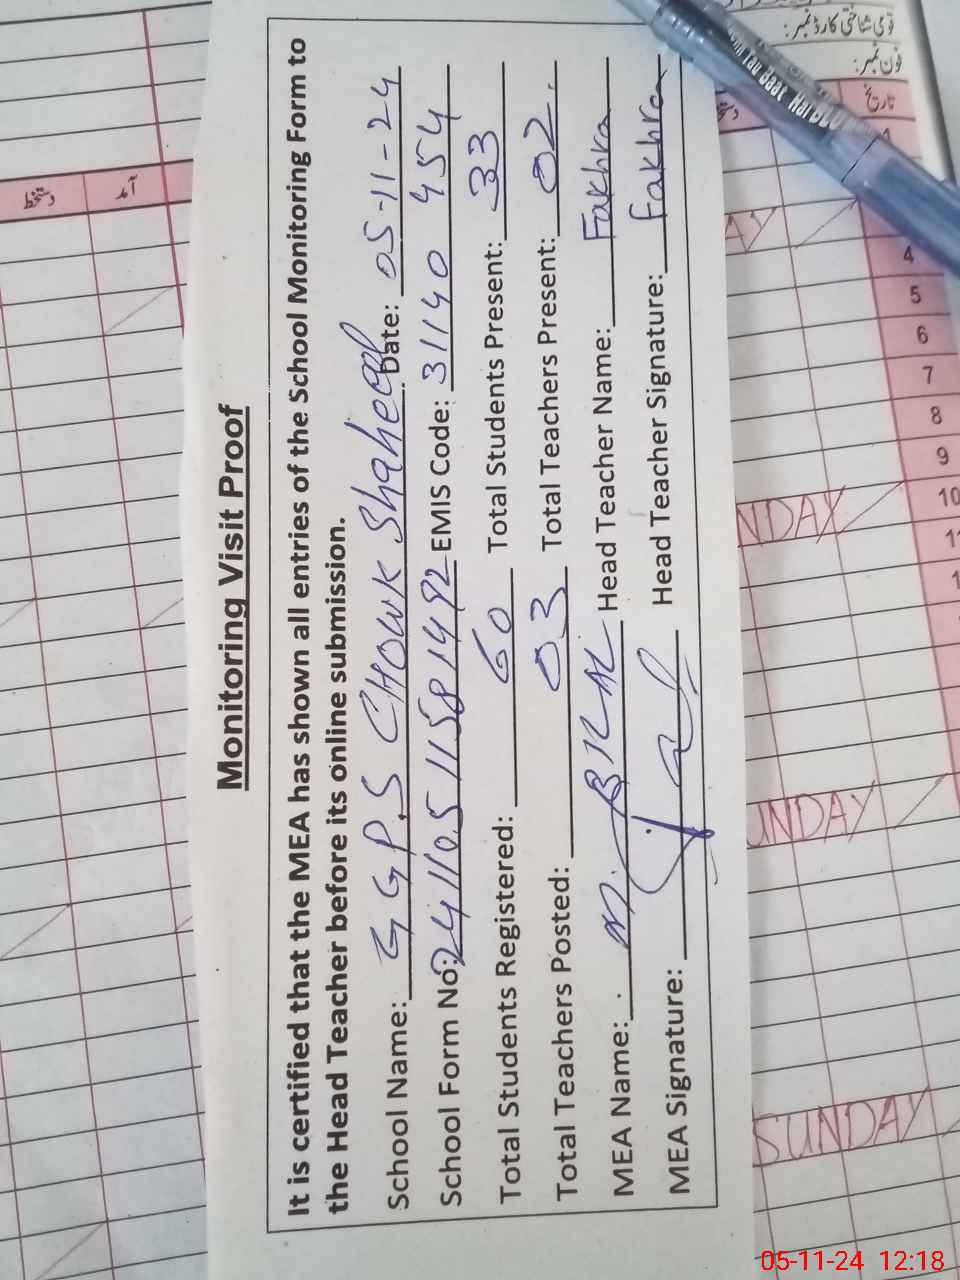 Monitoring Visit Proof
It is certified that the MEA has shown all entries of the School Monitoring Form to
the Head Teacher before its online submission.
School Name: G G P.S CHOWK Shaheed Date: 05-11-24
School Form No: 241105 1158 1492 EMIS Code: 31140 454
Total Students Registered: 60 Total Students Present: 33
Total Teachers Posted: 03 Total Teachers Present: 02.
MEA Name: Head Teacher Name: Fakhra
MEA Signature: Head Teacher Signature: Fakhra
قومی شناختی کارڈ نمبر:
فون نمبر:
تاریخ
دستخط
آمد
4
5
6
7
8
9
10
11
NDAY
UNDAY
SUNDAY
05-11-24 12:18